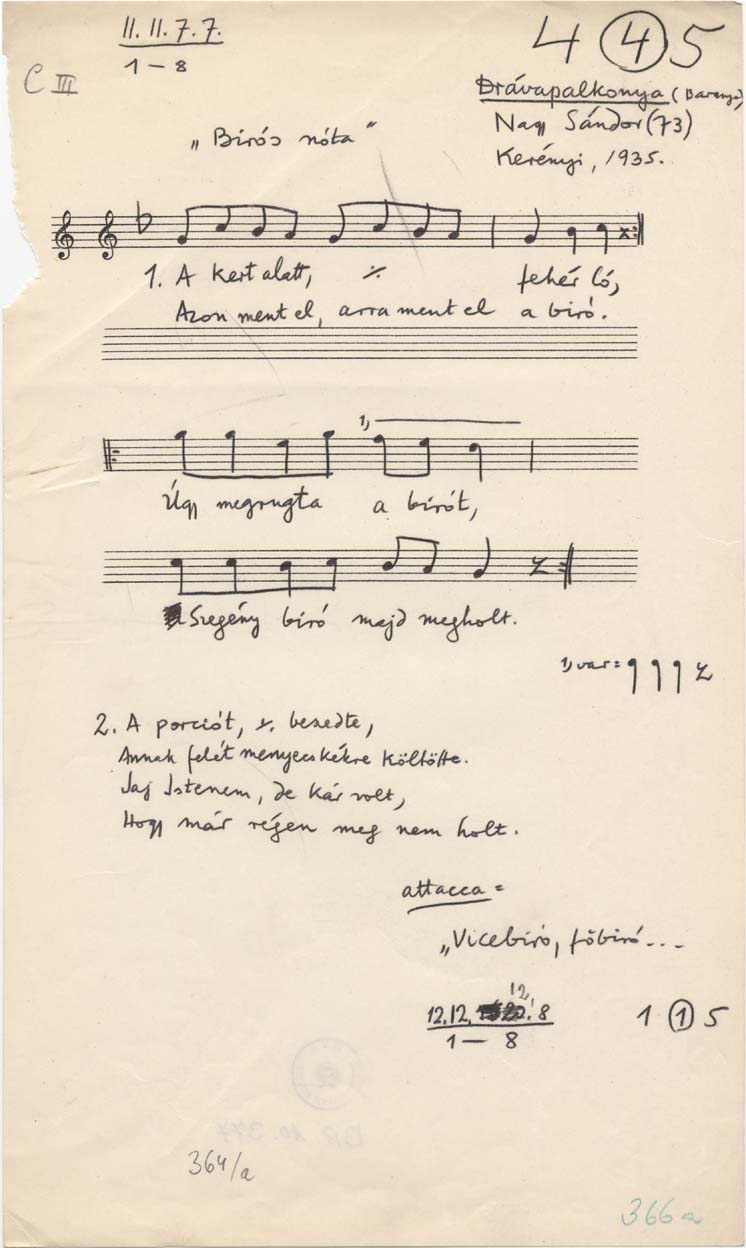 11. 11. 7. 7.
1 – 8
4 4 5
C III
Drávapalkonya (Baranya)
Nagy Sándor (73)
Kerényi, 1935.
„Birós nóta"
1. A kert alatt, ·/· fehér ló,
Azon ment el, arra ment el a biró.
1,
Úgy megrugta a birót,
Szegény biró majd megholt.
1, var =
2. A porciót, ·/· beszedte,
Annak felét menyecskékre költötte.
Jaj Istenem, de kár volt,
Hogy már régen meg nem holt.
attacca =
„Vicebiró, főbiró...
12. 12. 12. 8
1 – 8
1 1 5
364/a
366a